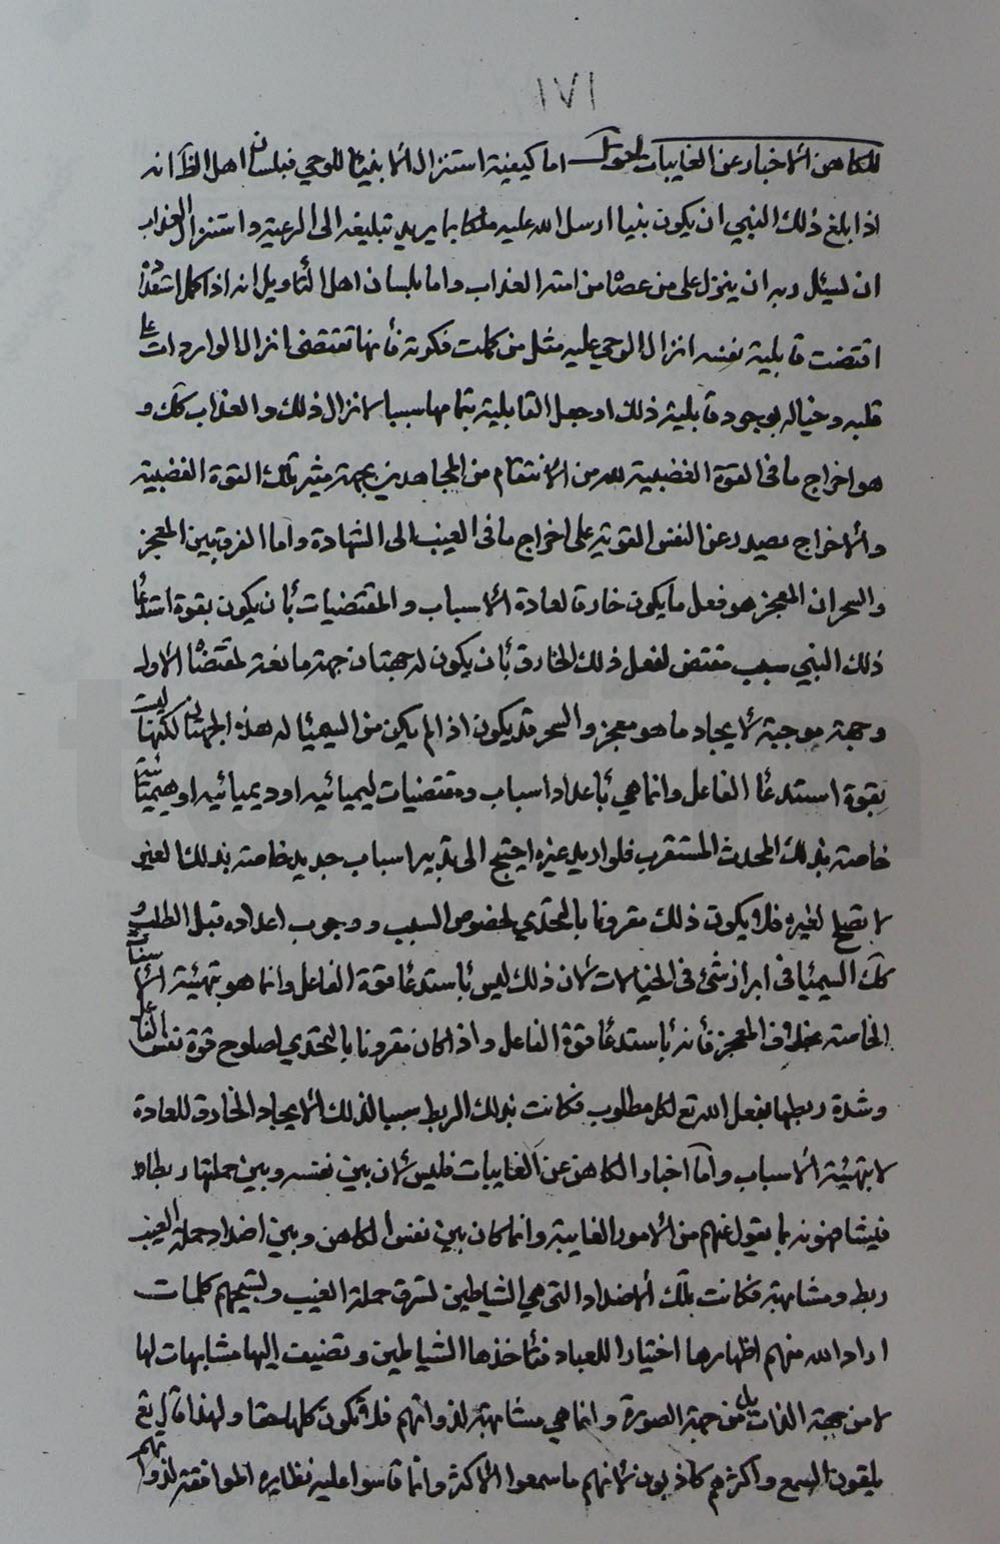 ١٧١
للكاهن الاخبار عن الغايبات الجواب اما كيفية استنزال الانبياء للوحي فبلسان اهل الظ انه
اذا بلغ ذلك النبي ان يكون نبيا ارسل الله عليه ملكا بما يريد تبليغه الى الرعية واستنزال العذاب
ان يسئل ربه ان ينزل على من عصاه من امته العذاب واما بلسان اهل التأويل انه اذا كمل استعداده
اقتضت قابلية نفسه انزال الوحي عليه مثل من كملت فكرته فأنها تقتضى انزال الواردات على
قلبه وخياله بوجود قابلية ذلك او جعل القابلية بتمامها سببا لانزال ذلك والعذاب كك و
هو اخراج ما فى القوة الغضبية لله من الانتقام من المجاهدين بجهة مثير تلك القوة الغضبية
والاخراج يصدر عن النفس القوية على اخراج ما فى الغيب الى الشهادة واما الفرق بين المعجز
والسحر ان المعجز هو فعل ما يكون خارقا لعادة الاسباب والمقتضيات بأن يكون بقوة استدعاء
ذلك النبي سبب مقتض لفعل ذلك الخارق بأن يكون له جهتان جهة مانعة لمقتضاه الاول
وجهة موجبة لايجاد ما هو معجز والسحر قد يكون اذا لم يكن من السيميا له هذه الجهتان لكنها ليست
بقوة استدعاء الفاعل وانما هي بأعداد اسباب ومقتضيات ليميائيه او ديميائيه او هيميائية
خاصة بذلك المحدث المستغرب فلو اريد غيره احتيج الى تدبير اسباب جديد خاصة بذلك الغير
لا تصلح لغيره فلا يكون ذلك مقرونا بالتحدي لخصوص السبب ووجوب اعداده قبل الطلب و
كك السيميا فى ابراز شئ فى الخيالات لان ذلك ليس بأستدعاء قوة الفاعل وانما هو بتهيئة الاسباب
الخاصة بخلاف المعجز فأنه بأستدعاء قوة الفاعل واذا كان مقرونا بالتحدي لصلوح قوة نفس الفاعل
وشدة ربطها بفعل الله تع لكل مطلوب فكانت بذلك الربط سببا لذلك الايجاد الخارق للعادة
لا بتهيئة الاسباب واما اخبار الكاهن عن الغايبات فليس لان بين نفسه وبين حملتها ربطا
فيشافهونه بما يقول عنهم من الامور الغايبة وانما كان بين نفس الكاهن وبين اضداد حملة الغيب
ربط ومشابهة فكانت تلك الاضداد التى هي الشياطين تسترق حملة الغيب كلمات
اراد الله منهم اظهارها اختبارا للعباد فتأخذها الشياطين وتضيف اليها مشابهات لها
لا من جهة الذات بل من جهة الصورة وانما هي مشابهة لذواتهم فلا تكون كلها حقا ولهذا قال تع
يلقون السمع واكثرهم كاذبون لانهم ما سمعوا الاكثر وانما قاسوا عليه نظايره الموافقة لذواتهم